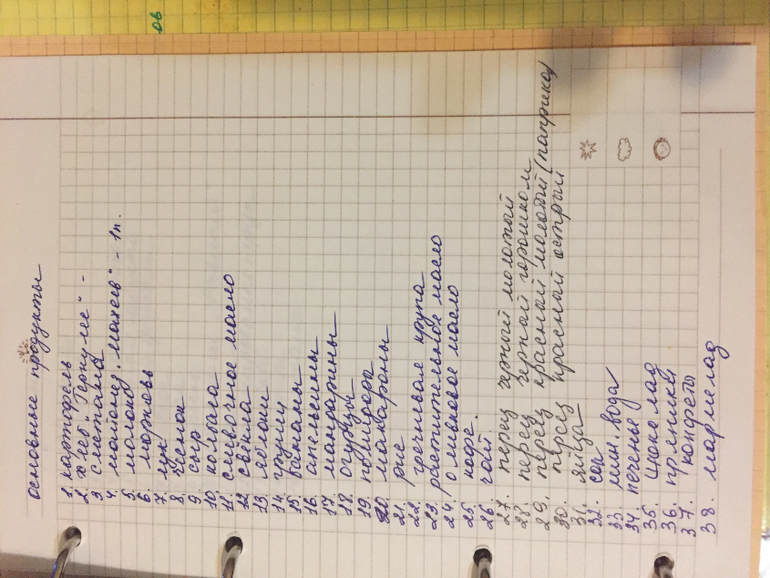 основные продукты
1. картофель
2. хлеб „Геркулес" -
3. сметана
4. майонез „Махеев" - 1п.
5. молоко
6. морковь
7. лук
8. чеснок
9. сыр
10. колбаса
11. сливочное масло
12. свёкла
13. яблоки
14. груши
15. бананы
16. апельсины
17. мандарины
18. огурцы
19. помидоры
20. макароны
21. рис
22. гречневая крупа
23. растительное масло
24. оливковое масло
25. кофе.
26. чай
27. перец черный молотый
28. перец черный горошком
29. перец красный молотый (паприка)
30. перец красный острый
31. яйца
32. сок
33. мин. вода
34. печенье
35. шоколад
36. пряники
37. конфеты
38. мармелад